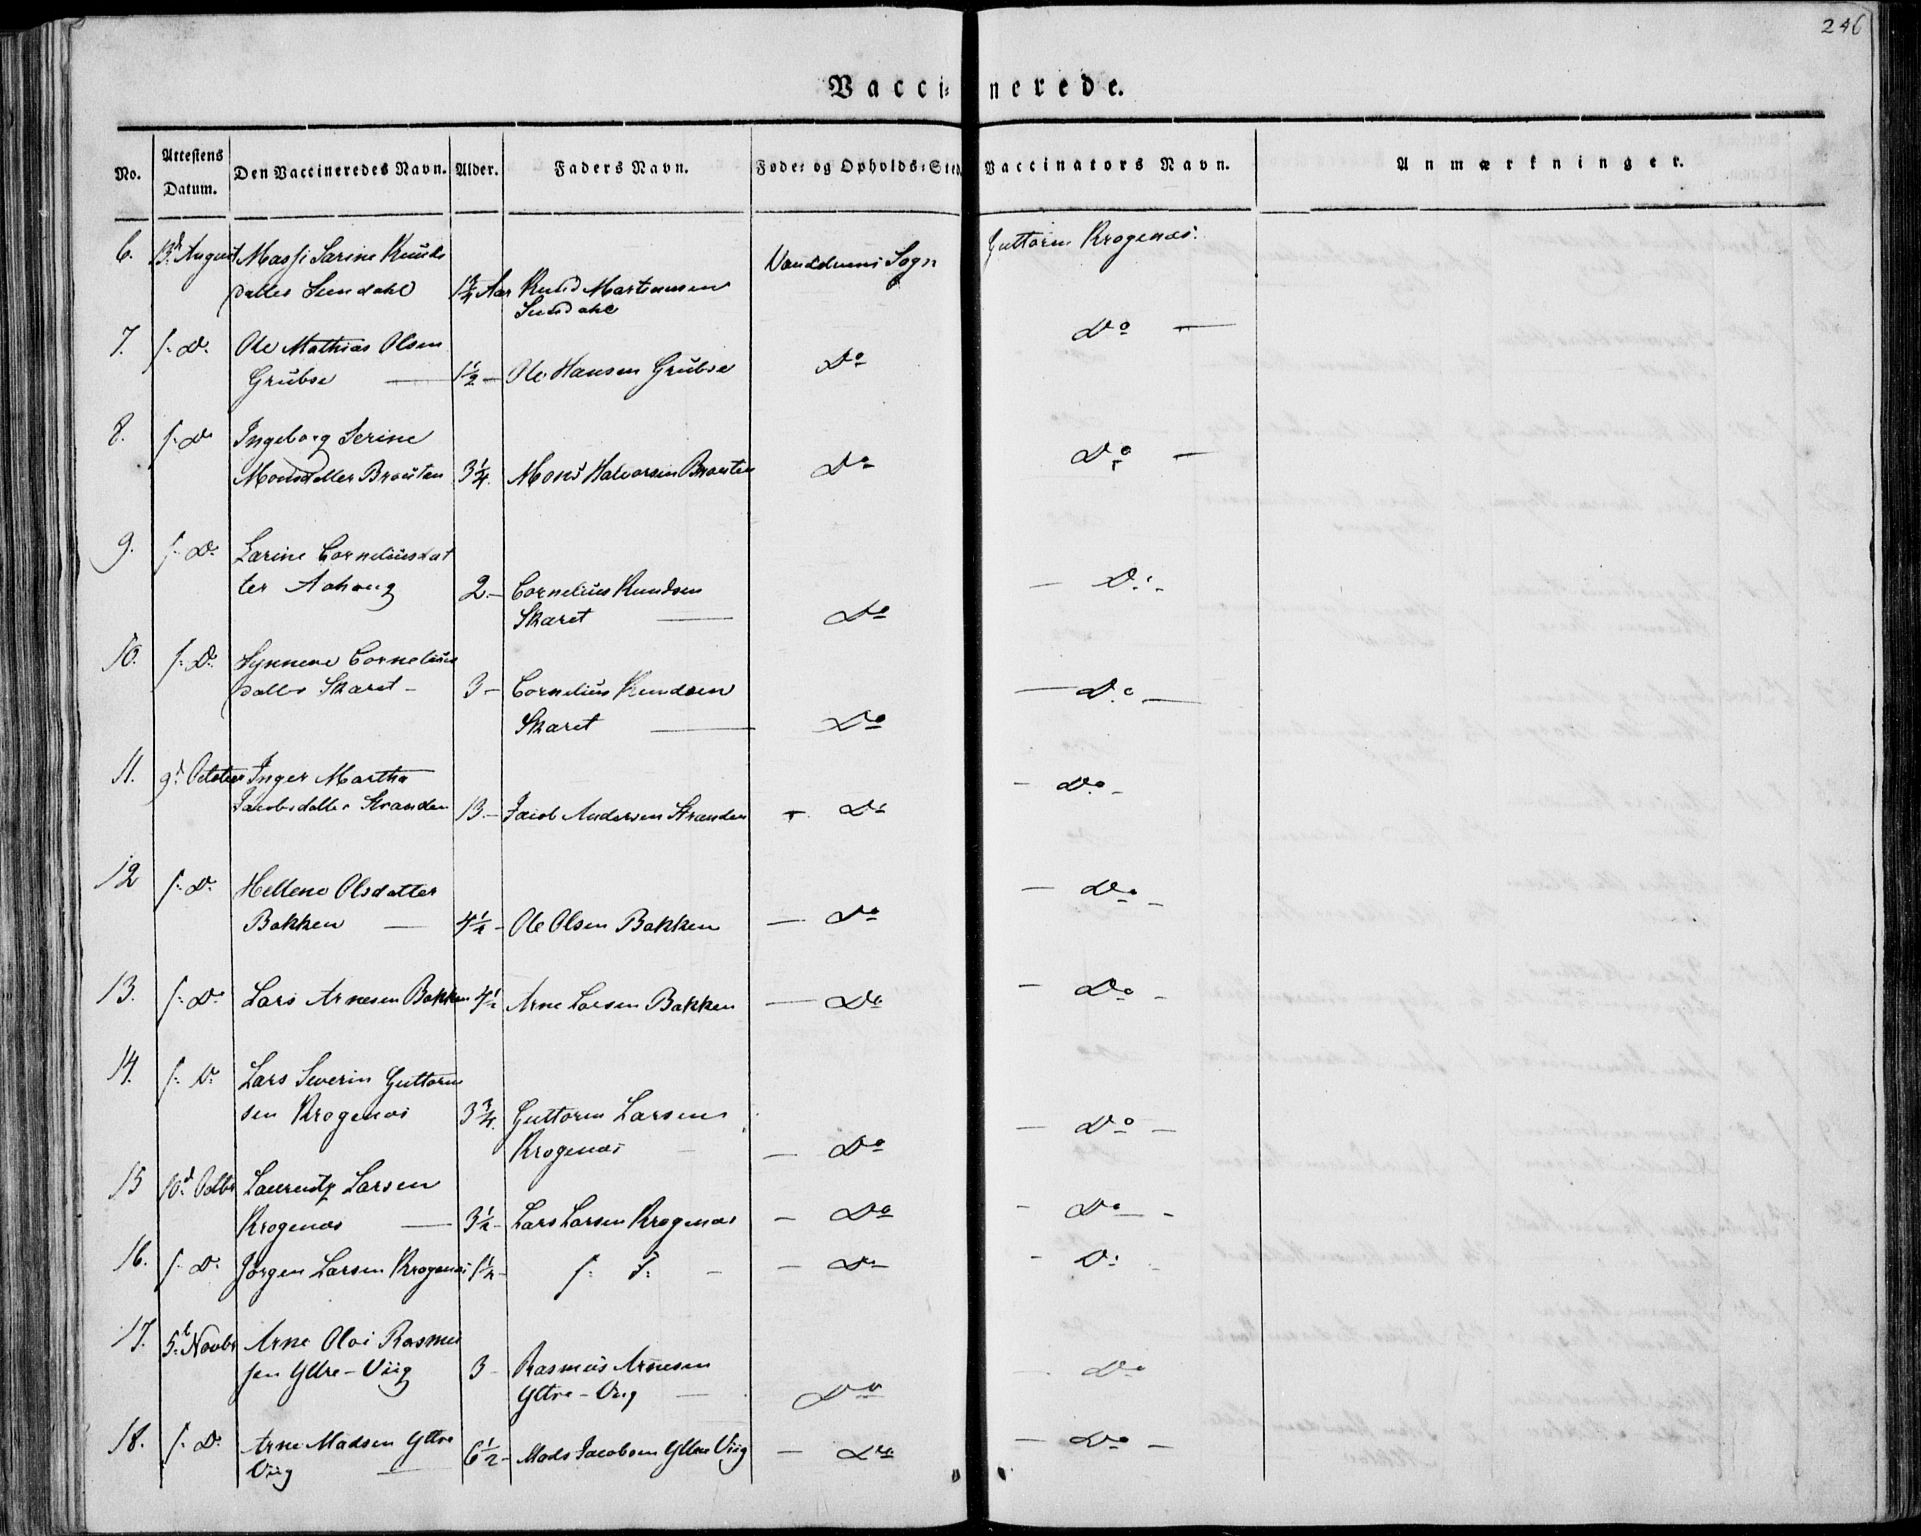 246
Vaccinerede.
No. Attestens Datum. Den Vaccineredes Navn. Alder. Faders Navn. Føde- og Opholds-Sted. Vaccinators Navn. Anmærkninger.
6. 13d August Massi Sarine Knuds Vanelvens Sogn Guttorm Krogenæs.
datter Sundahl 1 3/4 Aar Knud Martinusen
Sundahl
7. s. D. Ole Mathias Olsen Do —
Grubse — 1 1/2 — Ole Hansen Grubse Do
8. s. D. Ingeborg Serine Do —
Monsdatter Brousten 3 1/4. Mons Halvorsen Brousten Do
9. s. D. Larine Corneliusdat
ter Aahoug 2. — Cornelius Knudsen — Do —
Skaret — Do
10. s. D. Synneve Cornelius
datter Skaret — 3 — Cornelius Knudsen — Do —
Skaret — Do
11. 9d October Inger Martha — Do —
Jacobsdatter Stranden 13. — Jacob Andersen Stranden — Do
12 s. D. Hellene Olsdatter — Do —
Bakken — 4 1/2 — Ole Olsen Bakken — Do
13. s. D. Lars Arnesen Bakken 4 1/2 Arne Larsen Bakken — Do — Do —
14. s. D. Lars Severin Guttorm
sen Krogenæs 3 3/4. Guttorm Larsen — Do —
Krogenæs — — Do
15 10d Octbr Laurentz Larsen
Krogenæs — 3 1/2 — Lars Larsen Krogenæs — Do — Do —
16. s. D. Jørgen Larsen Krogenæs 1 1/2 — s. D. — — Do — Do —
17. 5t Novbr Arne Olai Rasmus
sen Yttre-Viig 3 — Rasmus Arnesen — Do
Yttre-Viig — Do
18. s. D. Arne Madsen Yttre — Do —
Viig — 6 1/2 — Mads Jacobsen Yttre Viig — Do